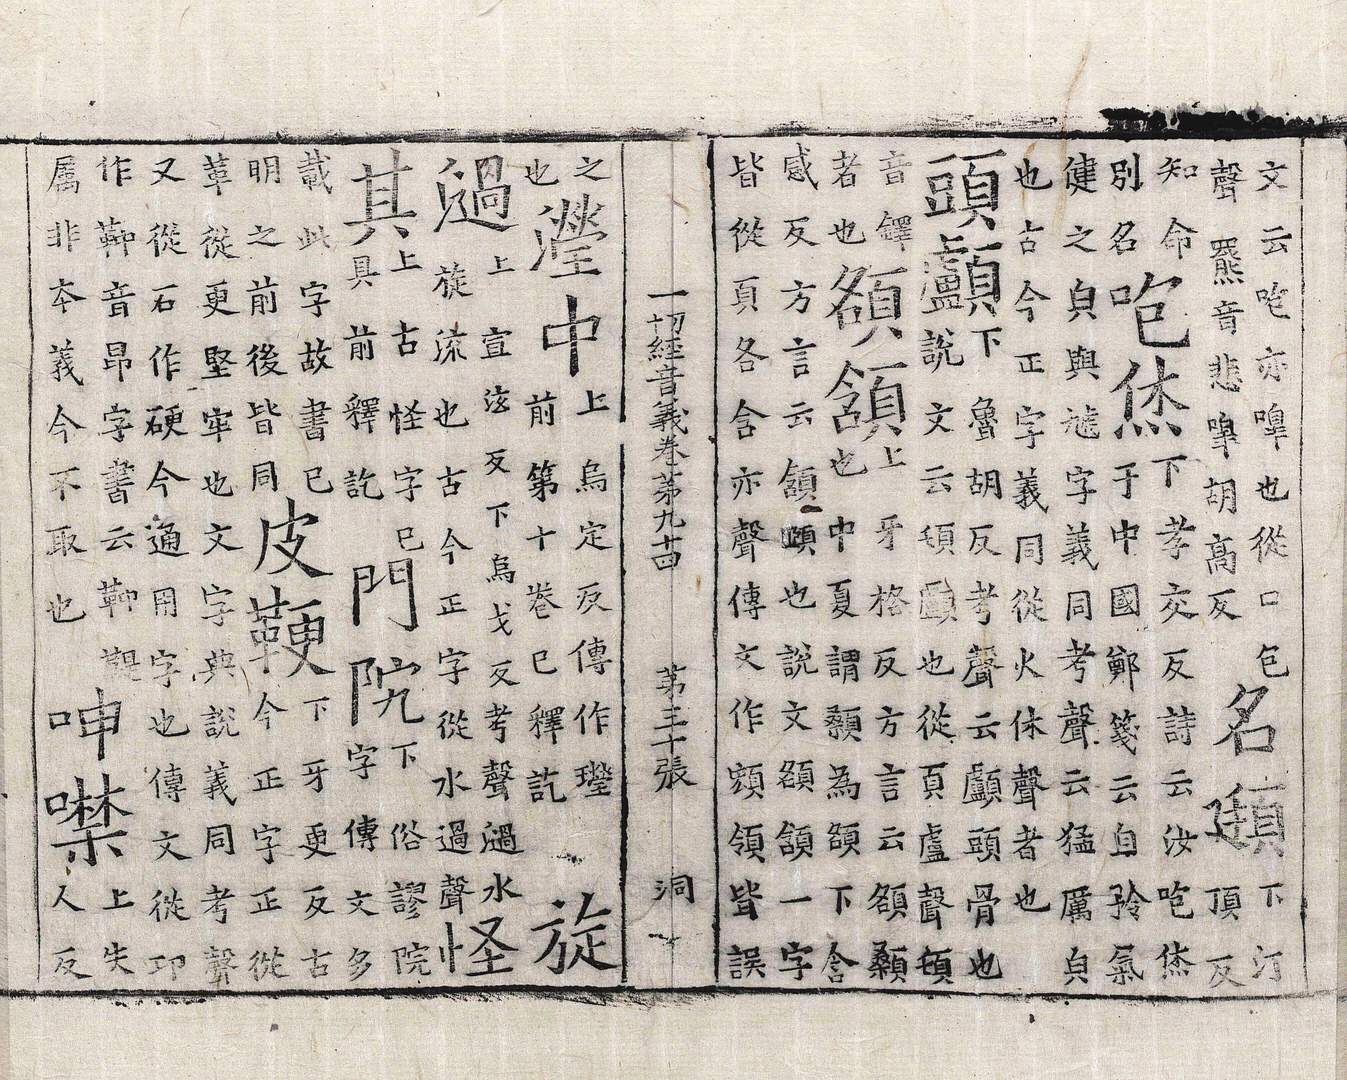 文云咆亦嘷也從口包
聲羆音悲嘷胡高反
名頲
下汀
頂反
知命
別名
咆烋
下孝交反詩云汝咆烋
于中國鄭箋云自矜氣
健之皃與字義同考聲云猛厲皃
也占今正字義同從火休聲者也
頭顱
下魯胡反考聲云顱頭骨也
說文云頊顱也從頁盧聲頊
音鐸
者也
額頷
上牙格反方言云額顙
也中夏謂顙為額下含
感反方言云頷頤也說文額頷一字
皆從頁各含亦聲傳文作領皆誤
一切經音義卷第九十四 第三十張 洞
之
也
瀅中
上烏定反傳作瑩
前第十卷已釋訖
旋
濄
上宣泫反下烏戈反考聲濄水
旋流也古今正字從水過聲
怪
其
上古怪字已
具前釋訖
門院
下俗謬院
字傳文多
載此字故書已
明之前後皆同
皮鞕
下牙更反古
今正字正從
革從更堅牢也文字典說義同考聲
又從石作硬今通用字也傳文從卬
作䩕音昂字書云䩕鞮
屬非本義今不取也
呻噤
上失
人反